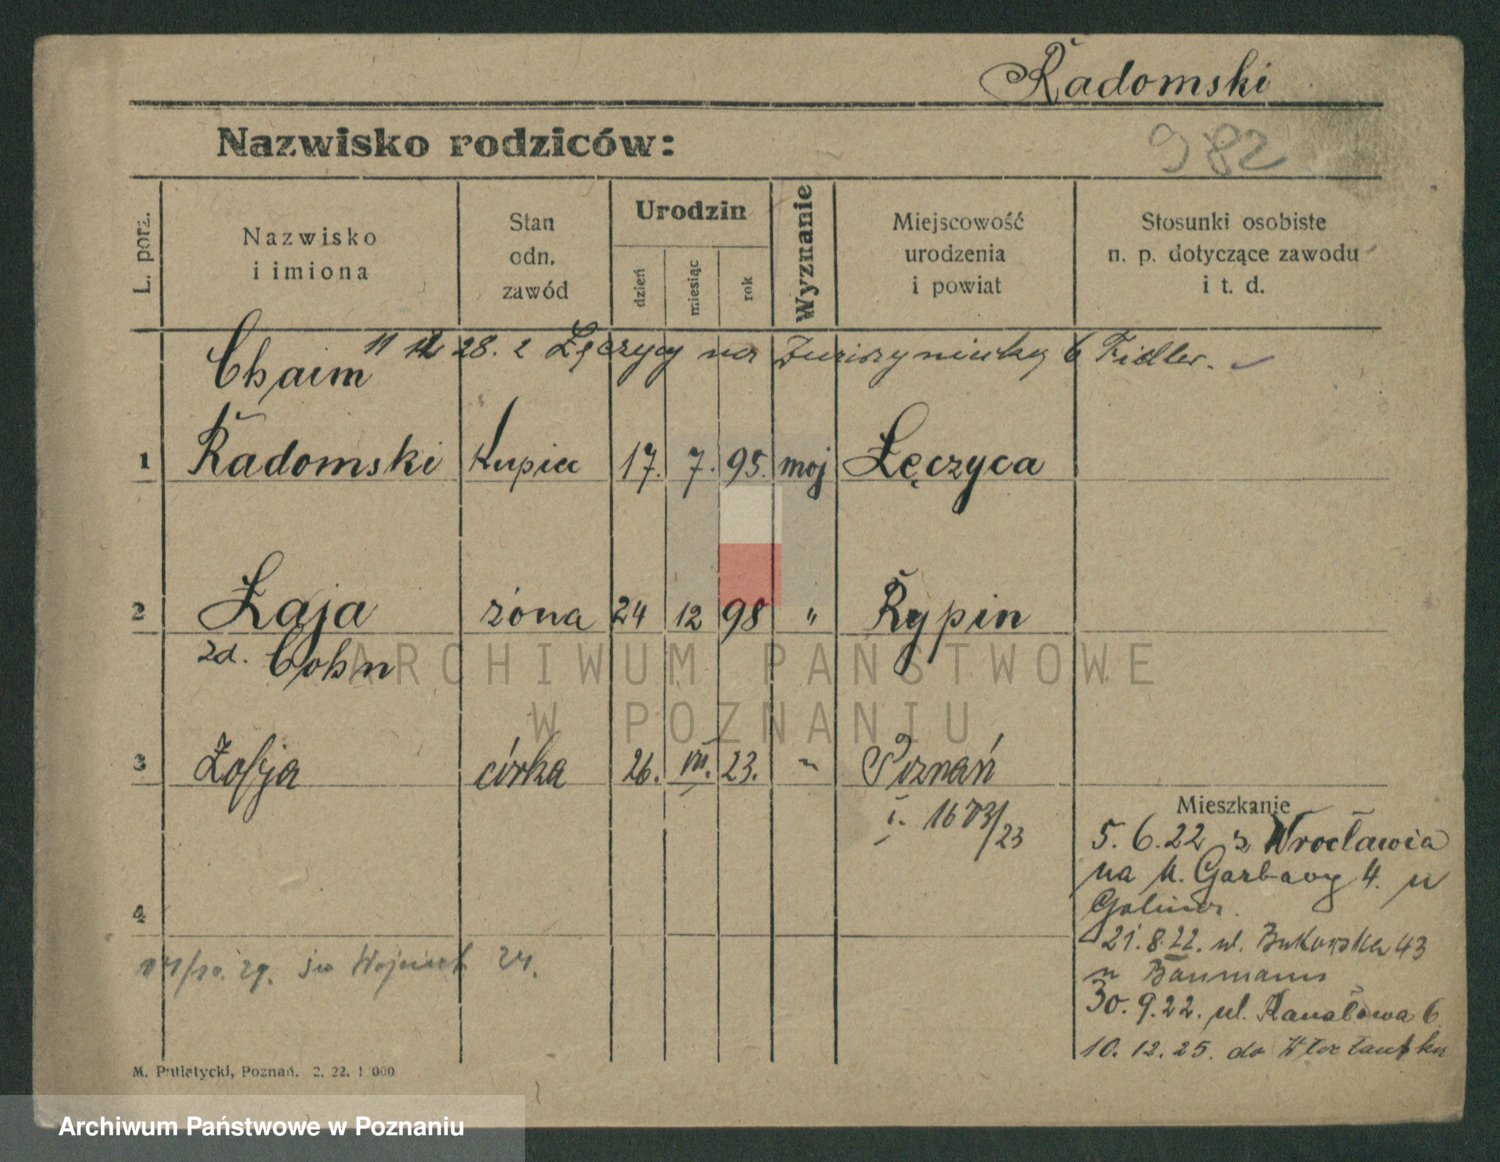 Radomski
Nazwisko rodziców:
982
L. porz.
Nazwisko
i imiona
Stan
odn.
zawód
Urodzin
dzień
miesiąc
rok
Wyznanie
Miejscowość
urodzenia
i powiat
Stosunki osobiste
n. p. dotyczące zawodu
i t. d.
11 12 28. z Łęczycy na 6 Fidler.
Chaim
1 Radomski Kupiec 17. 7. 95. moj Łęczyca
2 Łaja żona 24 12 98 " Rypin
zd. Cohn
3 Zofja córka 26. VII. 23. " Poznań
i. 1673/23
Mieszkanie
5.6.22 z Wrocławia
na M. Garbary 4. u
21.8.22. ul. Bukowska 43
u Baumann
30.9.22. ul. Kanałowa 6
4
24.
10.12.25. do Włocławka
M. Putiatycki, Poznań. 2. 22. 1 000
ARCHIWUM PAŃSTWOWE
W POZNANIU
Archiwum Państwowe w Poznaniu